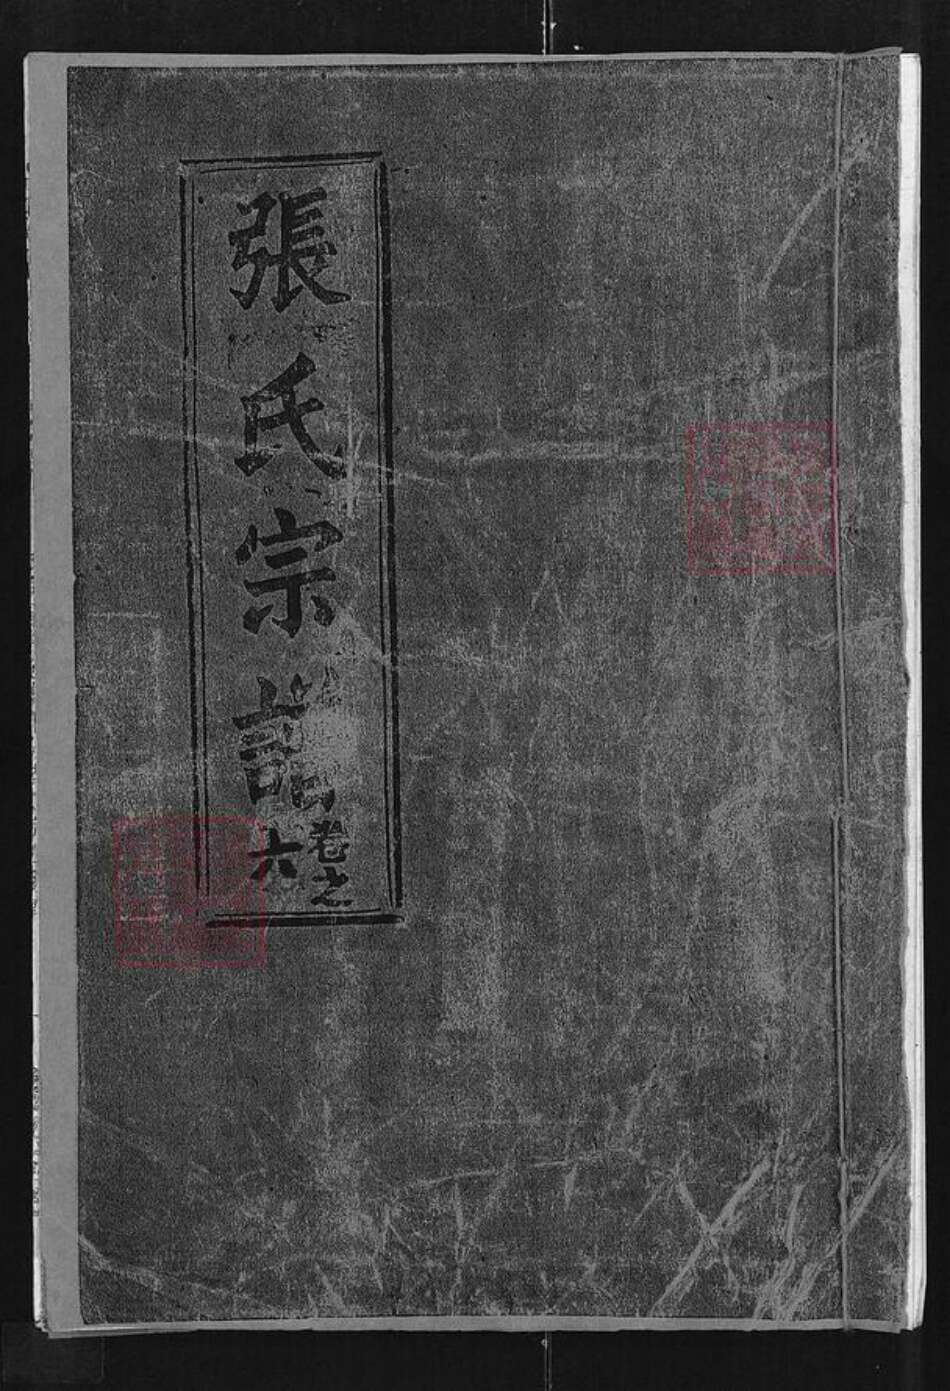 張氏宗譜
卷之六